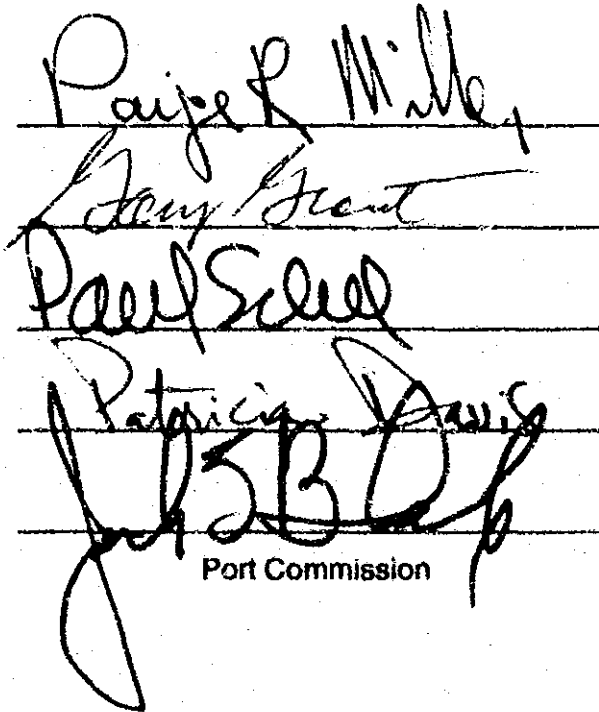 Paige R Miller
Gary Grant
Paul Schell
Patricia Davis
Jack Block
Port Commission